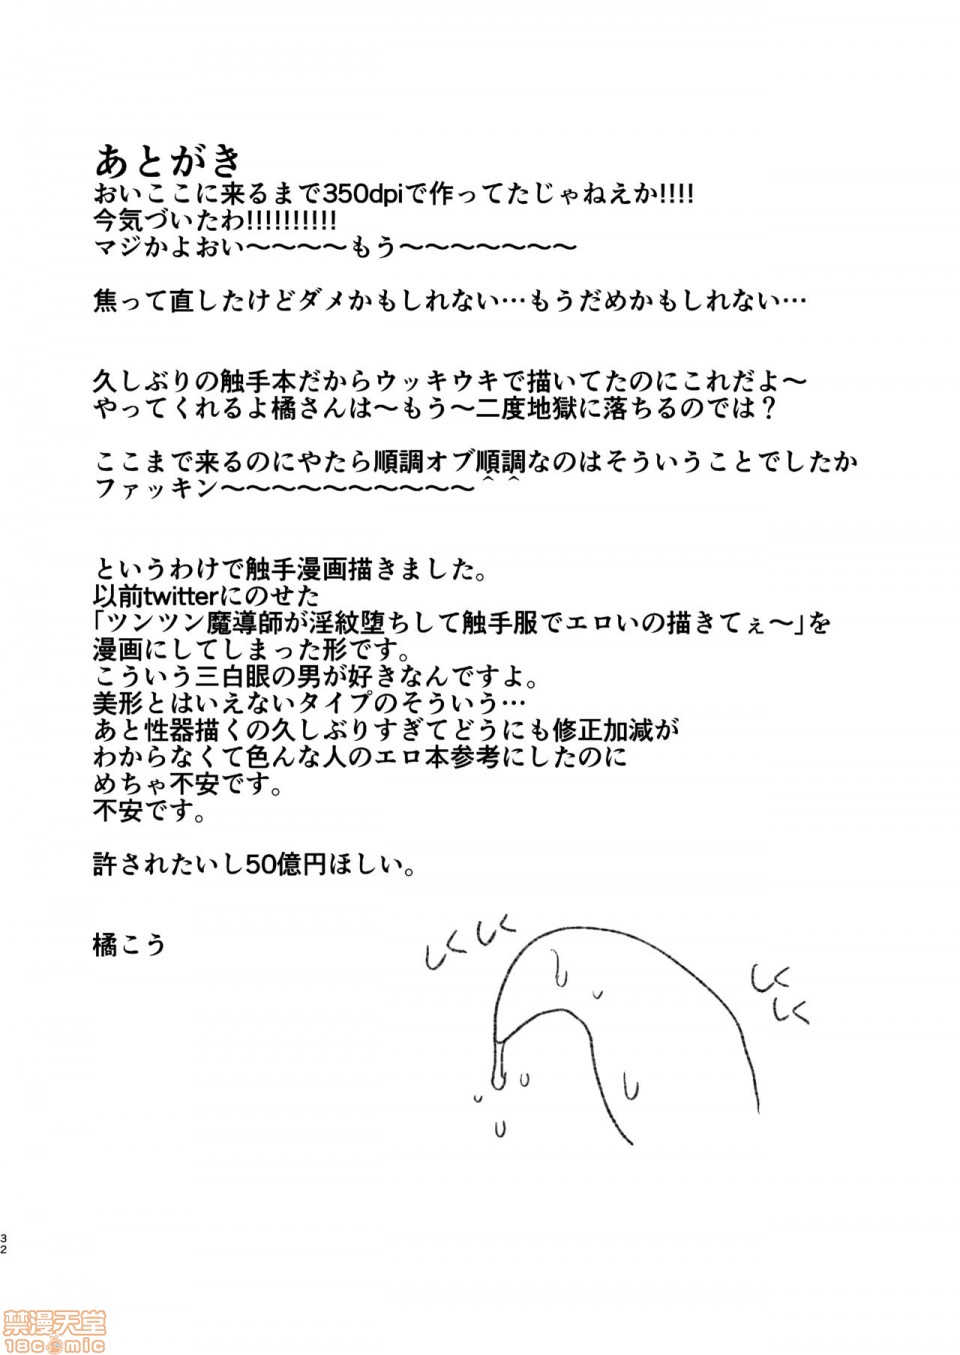 あとがき
おいここに来るまで350dpiで作ってたじゃねえか!!!!
今気づいたわ!!!!!!!!!!
マジかよおい～～～～もう～～～～～～～
焦って直したけどダメかもしれない…もうだめかもしれない…
久しぶりの触手本だからウッキウキで描いてたのにこれだよ～
やってくれるよ橘さんは～もう～二度地獄に落ちるのでは？
ここまで来るのにやたら順調オブ順調なのはそういうことでしたか
ファッキン～～～～～～～～～～＾＾
というわけで触手漫画描きました。
以前twitterにのせた
「ツンツン魔導師が淫紋堕ちして触手服でエロいの描きてぇ～」を
漫画にしてしまった形です。
こういう三白眼の男が好きなんですよ。
美形とはいえないタイプのそういう…
あと性器描くの久しぶりすぎてどうにも修正加減が
わからなくて色んな人のエロ本参考にしたのに
めちゃ不安です。
不安です。
許されたいし50億円ほしい。
橘こう
しくしく
しくしく
32
禁漫天堂
18comic